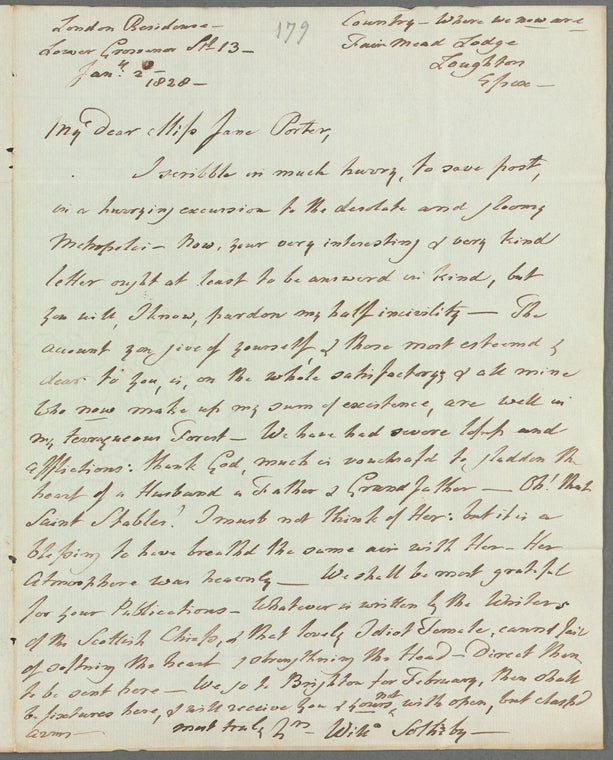 London Residence —
Lower Grosvenor St 13 —
Jany. 2d —
1828 —
179
Country — Where we now are
Fair Mead Lodge
Loughton
Essex —
My dear Miss Jane Porter,
I scribble in much hurry, to save post,
in a hurrying excursion to the desolate and gloomy
Metropolis — Now, your very interesting & very kind
letter ought at least to be answerd in kind, but
you will, I know, pardon my half incivility — The
account you give of yourself, & those most esteemed &
dear to you, is, on the whole satisfactory; & all mine
who now make up my sum of existence, are well in
my terraqueous Forest — We have had severe losses and
afflictions: thank God, much is vouchsafd to gladden the
heart of a Husband a Father & Grandfather — Oh! that
Saint Stables! I must not think of Her: but it is a
blessing to have breathd the same air with Her — Her
Atmosphere was heavenly — We shall be most grateful
for your Publications — Whatever is written by the Writers
of the Scottish Chiefs, & that lovely Idiot Female, cannot fail
of softning the heart & strengthning the Head — Direct them
to be sent here — We go to Brighton for February, then shall
be fixtures here, & will receive you & yours, not with open, but claspd
arms — most truly Yrs — Willm Sotheby —